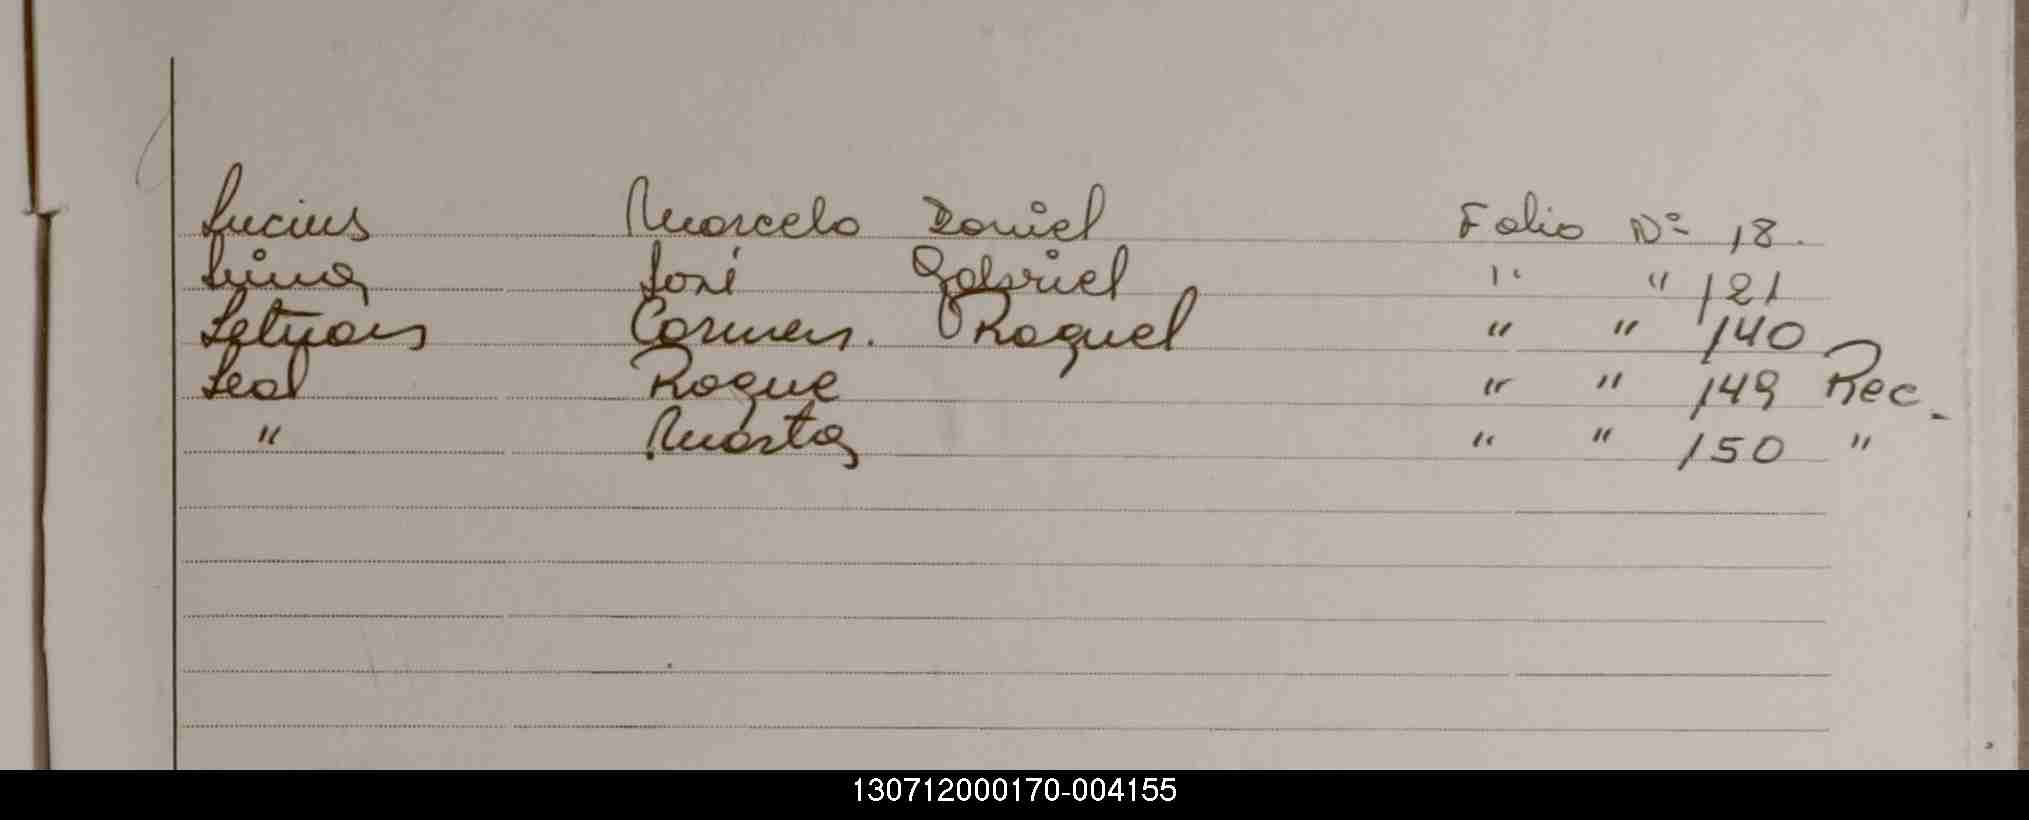 Lucius Marcelo Daniel Folio Nº 18.
Lima José Gabriel " " 121
Carmen. Raquel " " 140
Leal Roque " " 149 Rec.
" Marta " " 150 "
130712000170-004155